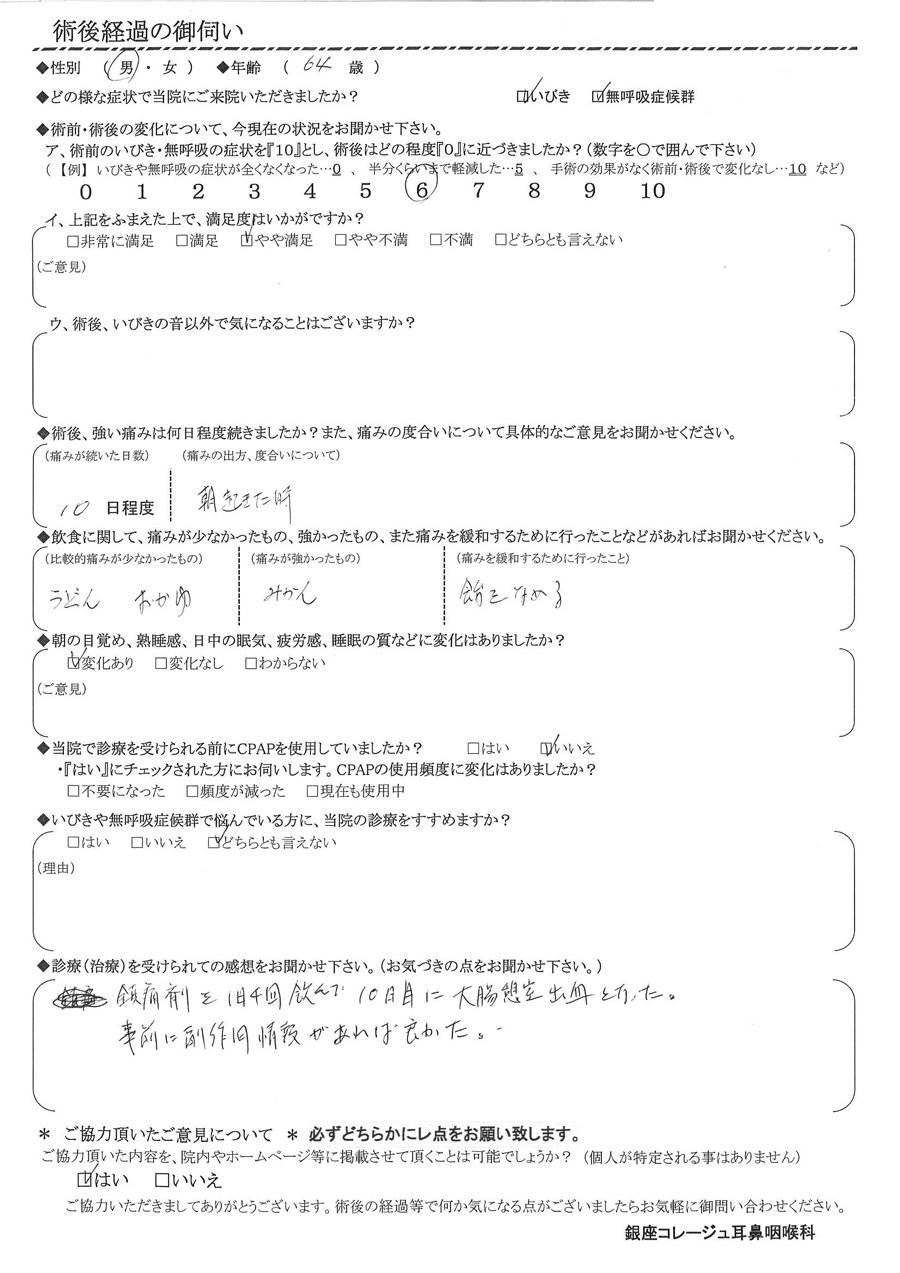 術後経過の御伺い
◆性別 （ 男 ・ 女 ） ◆年齢 （ 64 歳 ）
◆どの様な症状で当院にご来院いただきましたか？ ☑いびき ☑無呼吸症候群
◆術前・術後の変化について、今現在の状況をお聞かせ下さい。
ア、術前のいびき・無呼吸の症状を『10』とし、術後はどの程度『0』に近づきましたか？（数字を〇で囲んで下さい）
（ 【例】 いびきや無呼吸の症状が全くなくなった…0 、 半分くらいまで軽減した…5 、 手術の効果がなく術前・術後で変化なし…10 など）
0 1 2 3 4 5 6 7 8 9 10
イ、上記をふまえた上で、満足度はいかがですか？
□非常に満足 □満足 ☑やや満足 □やや不満 □不満 □どちらとも言えない
（ご意見）
ウ、術後、いびきの音以外で気になることはございますか？
◆術後、強い痛みは何日程度続きましたか？また、痛みの度合いについて具体的なご意見をお聞かせください。
（痛みが続いた日数） （痛みの出方、度合いについて）
10 日程度 朝起きた時
◆飲食に関して、痛みが少なかったもの、強かったもの、また痛みを緩和するために行ったことなどがあればお聞かせください。
（比較的痛みが少なかったもの） （痛みが強かったもの） （痛みを緩和するために行ったこと）
うどん おかゆ みかん 飴をなめる
◆朝の目覚め、熟睡感、日中の眠気、疲労感、睡眠の質などに変化はありましたか？
☑変化あり □変化なし □わからない
（ご意見）
◆当院で診療を受けられる前にCPAPを使用していましたか？ □はい ☑いいえ
・『はい』にチェックされた方にお伺いします。CPAPの使用頻度に変化はありましたか？
□不要になった □頻度が減った □現在も使用中
◆いびきや無呼吸症候群で悩んでいる方に、当院の診療をすすめますか？
□はい □いいえ ☑どちらとも言えない
（理由）
◆診療（治療）を受けられての感想をお聞かせ下さい。（お気づきの点をお聞かせ下さい。）
鎮痛剤を1日4回飲んで10日目に大腸憩室出血となった。
事前に副作用情報があれば良かた。
＊ ご協力頂いたご意見について ＊ 必ずどちらかにレ点をお願い致します。
ご協力頂いた内容を、院内やホームページ等に掲載させて頂くことは可能でしょうか？ （個人が特定される事はありません）
☑はい □いいえ
ご協力いただきましてありがとうございます。術後の経過等で何か気になる点がございましたらお気軽に御問い合わせください。
銀座コレージュ耳鼻咽喉科